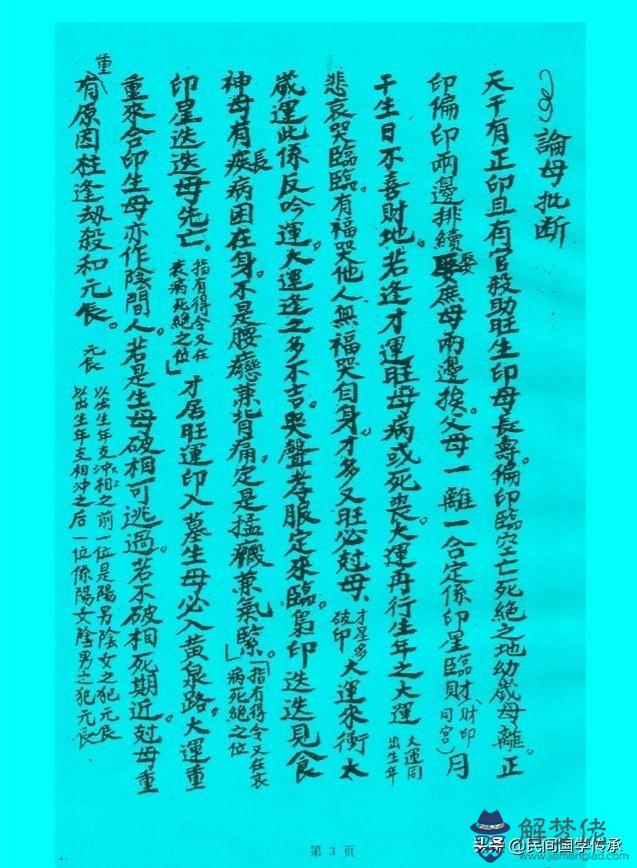 論母批断
天干有正印且有官殺助旺生印母長壽。偏印臨空亡死絶之地幼歲母離。正
印偏印兩邊排續娶庶母兩邊挨。父母一離一合定係印星臨財(財印同宮)月
干生日不喜財地。若逢才運旺母病或死喪。大運再行生年之大運 大運同出生年
悲哀哭臨臨。有福哭他人無福哭自身。才多又旺必尅母、才星多破印 大運來衝太
歲運此係反吟運。大運逢之多不吉。哭聲孝服定來臨。梟印迭迭見食
神母有疾病長困在身。不是腰兼背痛。定是兼氣緊。「指有得令又在衰病死絶之位
印星迭迭母先亡。指有得令又在衰病死絶之位」才居旺運印入墓生母必入黄泉路。大運重
重來合印生母亦作陰間人。若是生母破相可逃過。若不破相死期近尅母重
重有原因柱逢劫殺和元辰。元辰 以出生年支冲相之前一位是陽男陰女之犯元辰
以出生年支相冲之后一位係陽女陰男之犯元辰
第 3 页
解梦佬
www.jiemenglao.com
头条 @民间国学传承